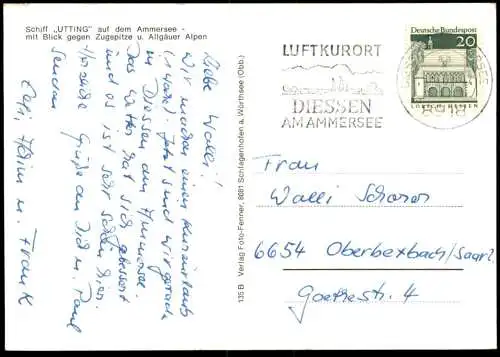 Schiff „UTTING" auf dem Ammersee -
mit Blick gegen Zugspitze u. Allgäuer Alpen
Liebe Walli!
Wir machen einen Kurzurlaub
(1 Woche). Jetzt sind wir gerade
in Diessen am Ammersee.
Das Wetter hat sich gebessert
und es ist sehr schön hier.
Viele Grüße an Dich u. Paul
senden
Heim u. Frank
135 B Verlag Foto-Fenner, 8081 Schlagenhofen a. Wörthsee (Obb.)
LUFTKURORT
DIESSEN
AM AMMERSEE
Deutsche Bundespost
20
LORSCH/HESSEN
8918
Frau
Walli Scherer
6654 Oberbexbach/Saarl.
Goethestr. 4